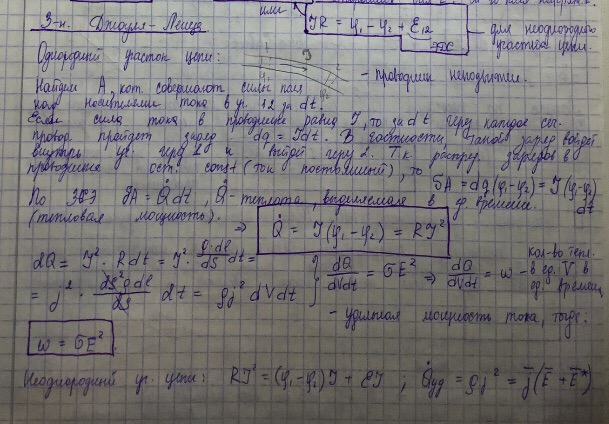 или
IR = φ₁ - φ₂ + ℰ₁₂ — для неоднородного участка цепи.
З-н. Джоуля - Ленца
Однородный участок цепи:
- проводник неподвижен.
Найдём A, кот. совершают силы поля
над носителями тока в уч. 12 за dt.
Если сила тока в проводнике равна I, то за dt через каждое сеч.
провод. пройдёт заряд dq = Idt. В частности, такой заряд войдёт
внутрь уч. через 1 и выйдет через 2. Т.к. распред. зарядов в
проводнике ост. const (ток постоянный), то
δA = dq(φ₁-φ₂) = I(φ₁-φ₂)dt
По ЗСЭ δA = Q̇dt, Q̇ - теплота, выделяемая в ед. времени.
(тепловая мощность). ⇒ Q̇ = I(φ₁-φ₂) = RI²
dQ = I² · Rdt = I² · ρ·dl/dS dt =
= j² · dS²ρdl/dS dt = ρj² dVdt } dQ/dVdt = σE² ⇒ dQ/dVdt = w - кол-во тепл. в ед. V в ед. времени
- удельная мощность тока, тогда:
w = σE²
Неоднородный уч. цепи: RI² = (φ₁-φ₂)I + ℰI ; Q̇уд = ρj² = j̄(Ē + Ē*)